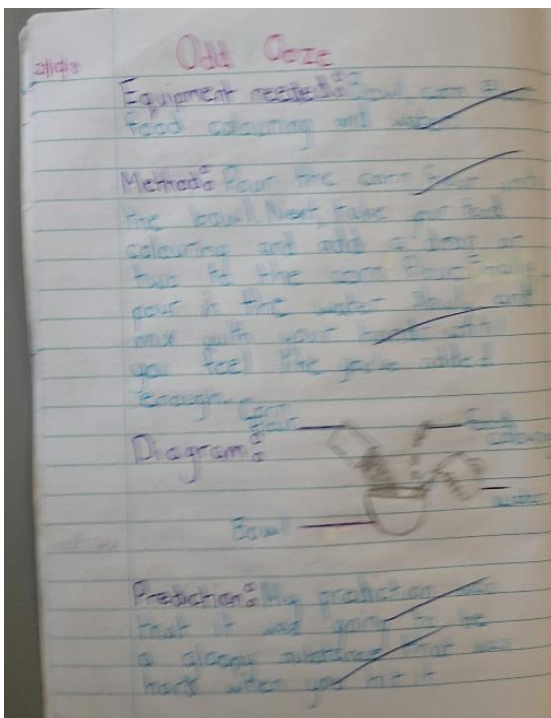 Odd Ooze
Equipment needed: Bowl, corn flour
food colouring and water
Method: Pour the corn flour into
the bowl. Next, take your food
colouring and add a drop or
two to the corn flour. Finally
pour in the water slowly and
mix with your hands until
you feel like you've added
enough.
Corn
flour
Food
colouring
Diagram:
water
Bowl
Prediction: My prediction was
that it was going to be
a gloopy substance that was
hard when you hit it